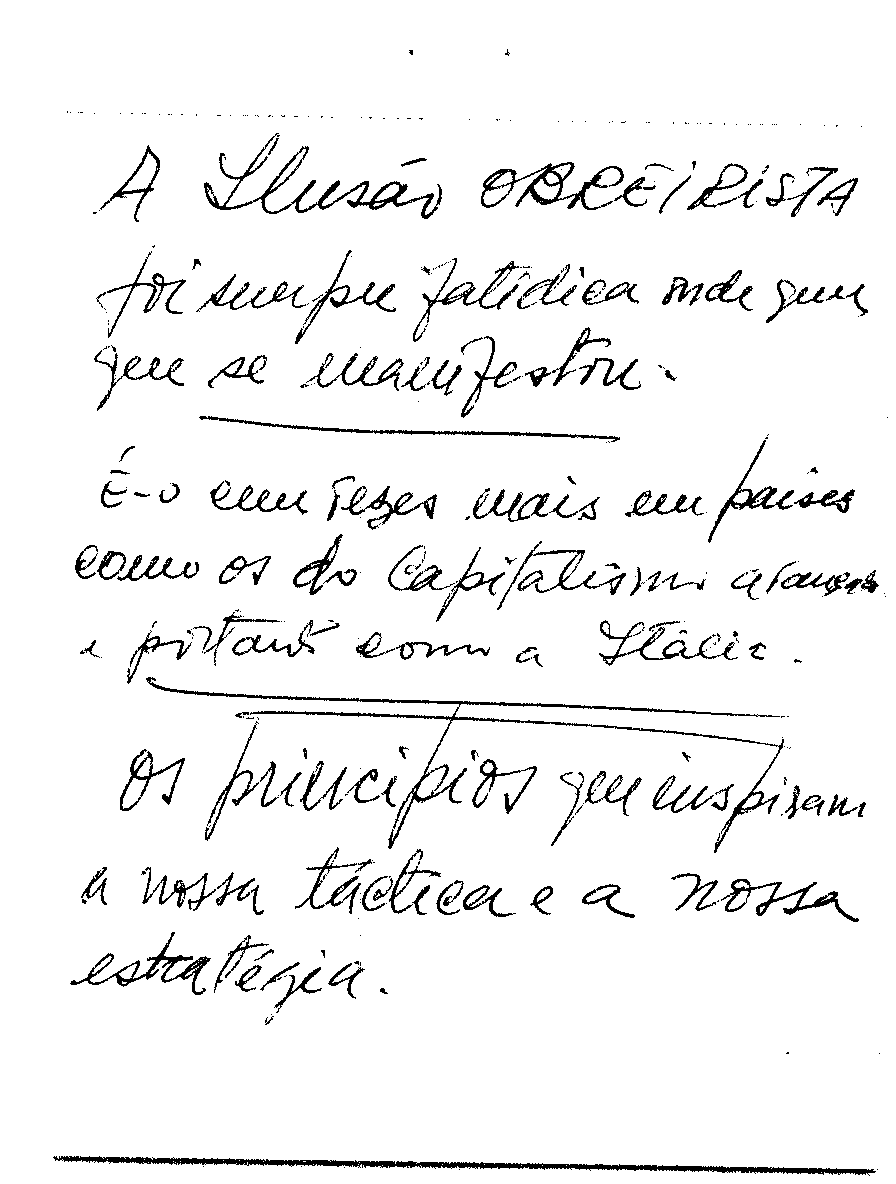 A Ilusão OBREIRISTA
foi sempre fatídica onde quer
que se manifestou.
É-o cem vezes mais em países
como os do Capitalismo avançado
e portanto como a Itália.
Os princípios que inspiram
a nossa táctica e a nossa
estratégia.